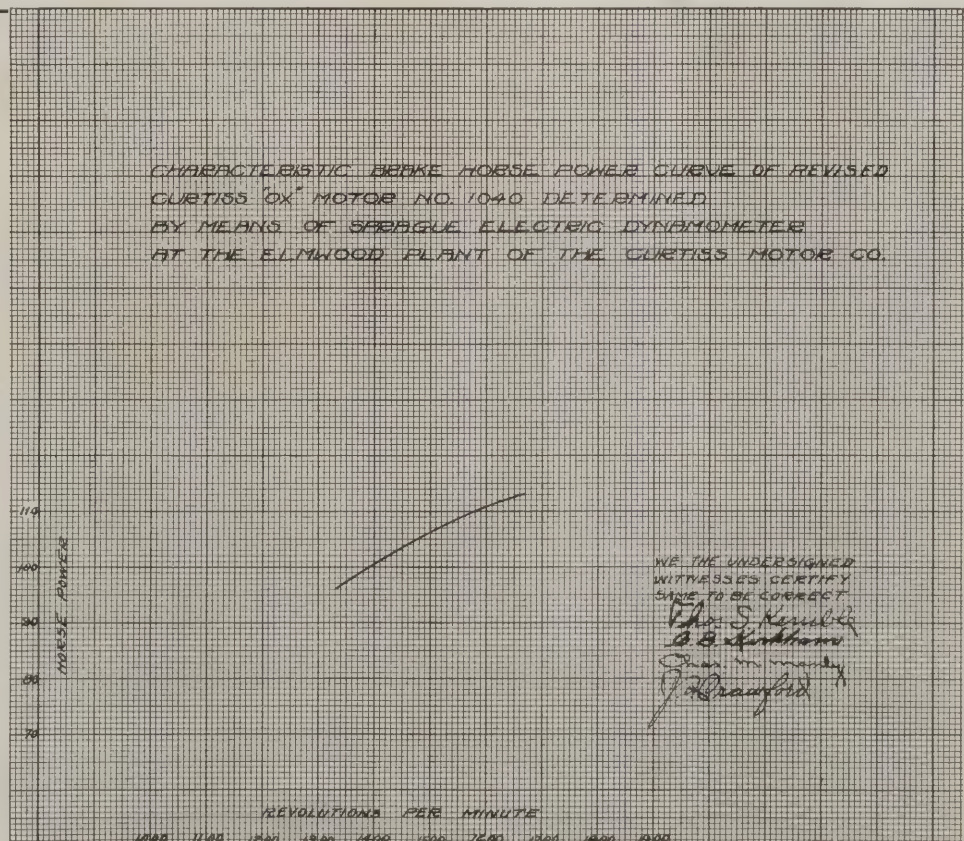 CHARACTERISTIC BRAKE HORSE POWER CURVE OF REVISED
CURTISS "OX" MOTOR NO. 1040 DETERMINED
BY MEANS OF SPRAGUE ELECTRIC DYNAMOMETER
AT THE ELMWOOD PLANT OF THE CURTISS MOTOR CO.
110
100
90
80
70
HORSE POWER
WE THE UNDERSIGNED
WITNESSES CERTIFY
SAME TO BE CORRECT
Thos. S. Kemble
C.B. Kirkham
Chas. M. Manly
Crawford
REVOLUTIONS PER MINUTE
1000 1100 1200 1300 1400 1500 1600 1700 1800 1900